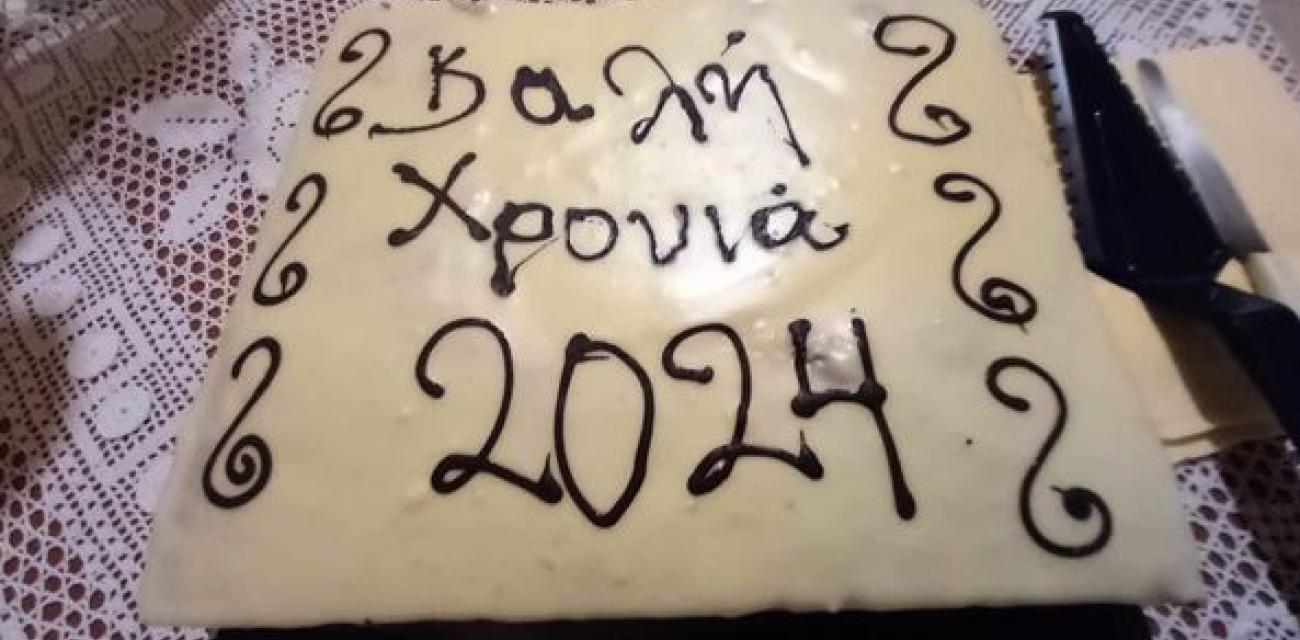 Καλή
Χρονιά
2024